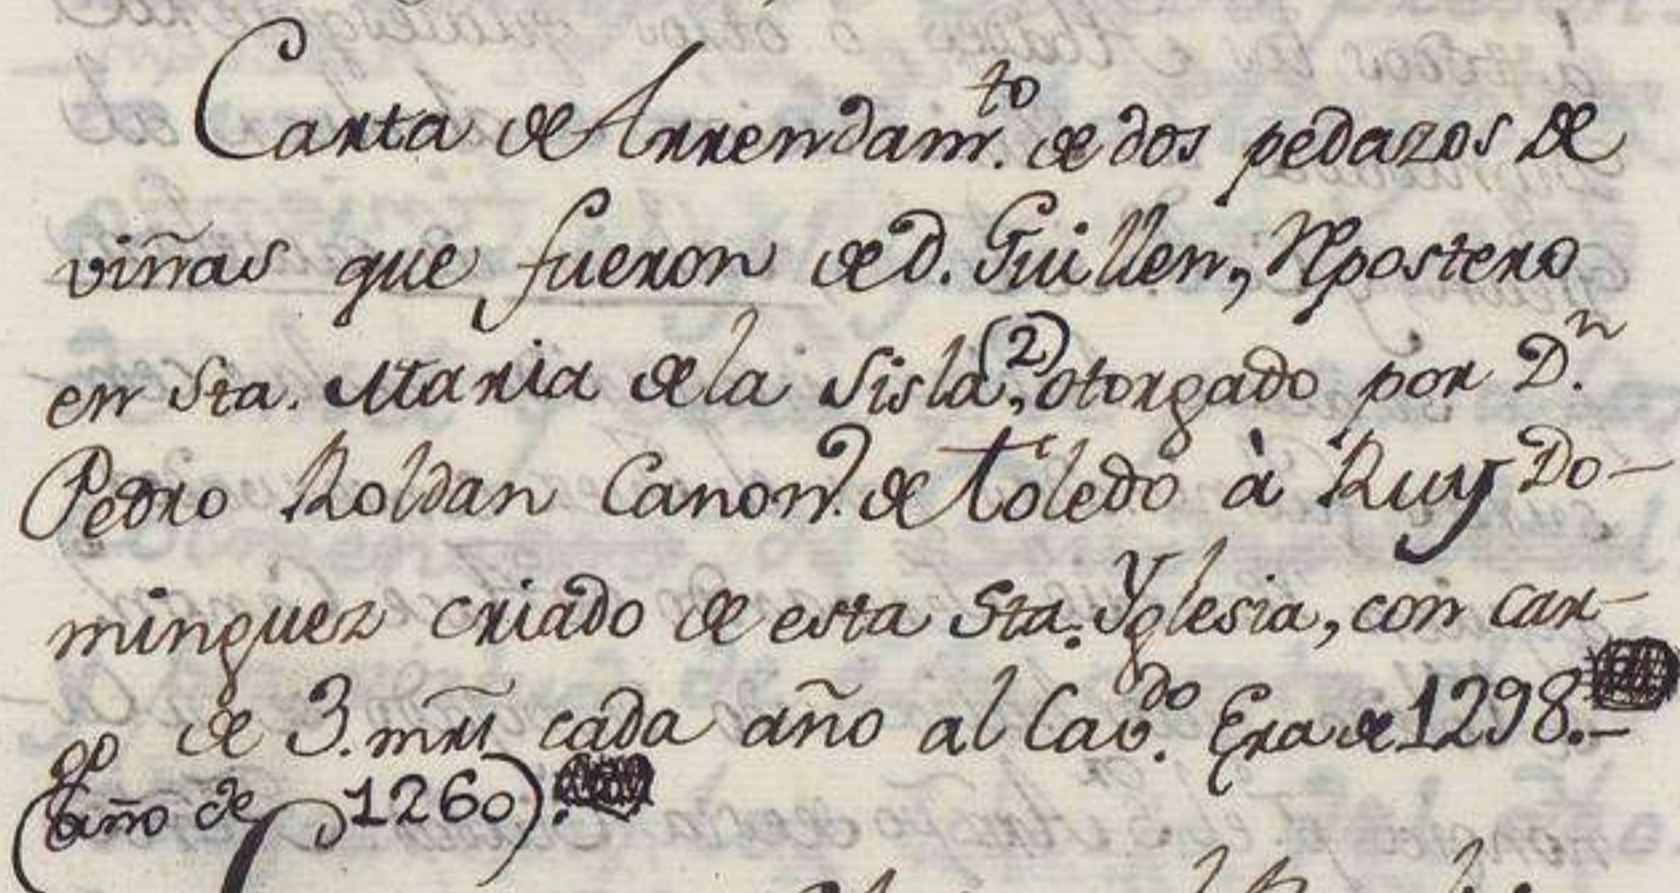 Carta de Arrendam.to de dos pedazos de
viñas que fueron de d. Guillen, Rpostero
en Sta. Maria de la Sisla(2), otorgado por D.n
Pedro Roldan Canon.º de Toledo à Ruy Do-
minguez criado de esta Sta. Yglesia, con car-
go de 3. mrs̃ cada año al Cav.do Era de 1298.-
(año de 1260).